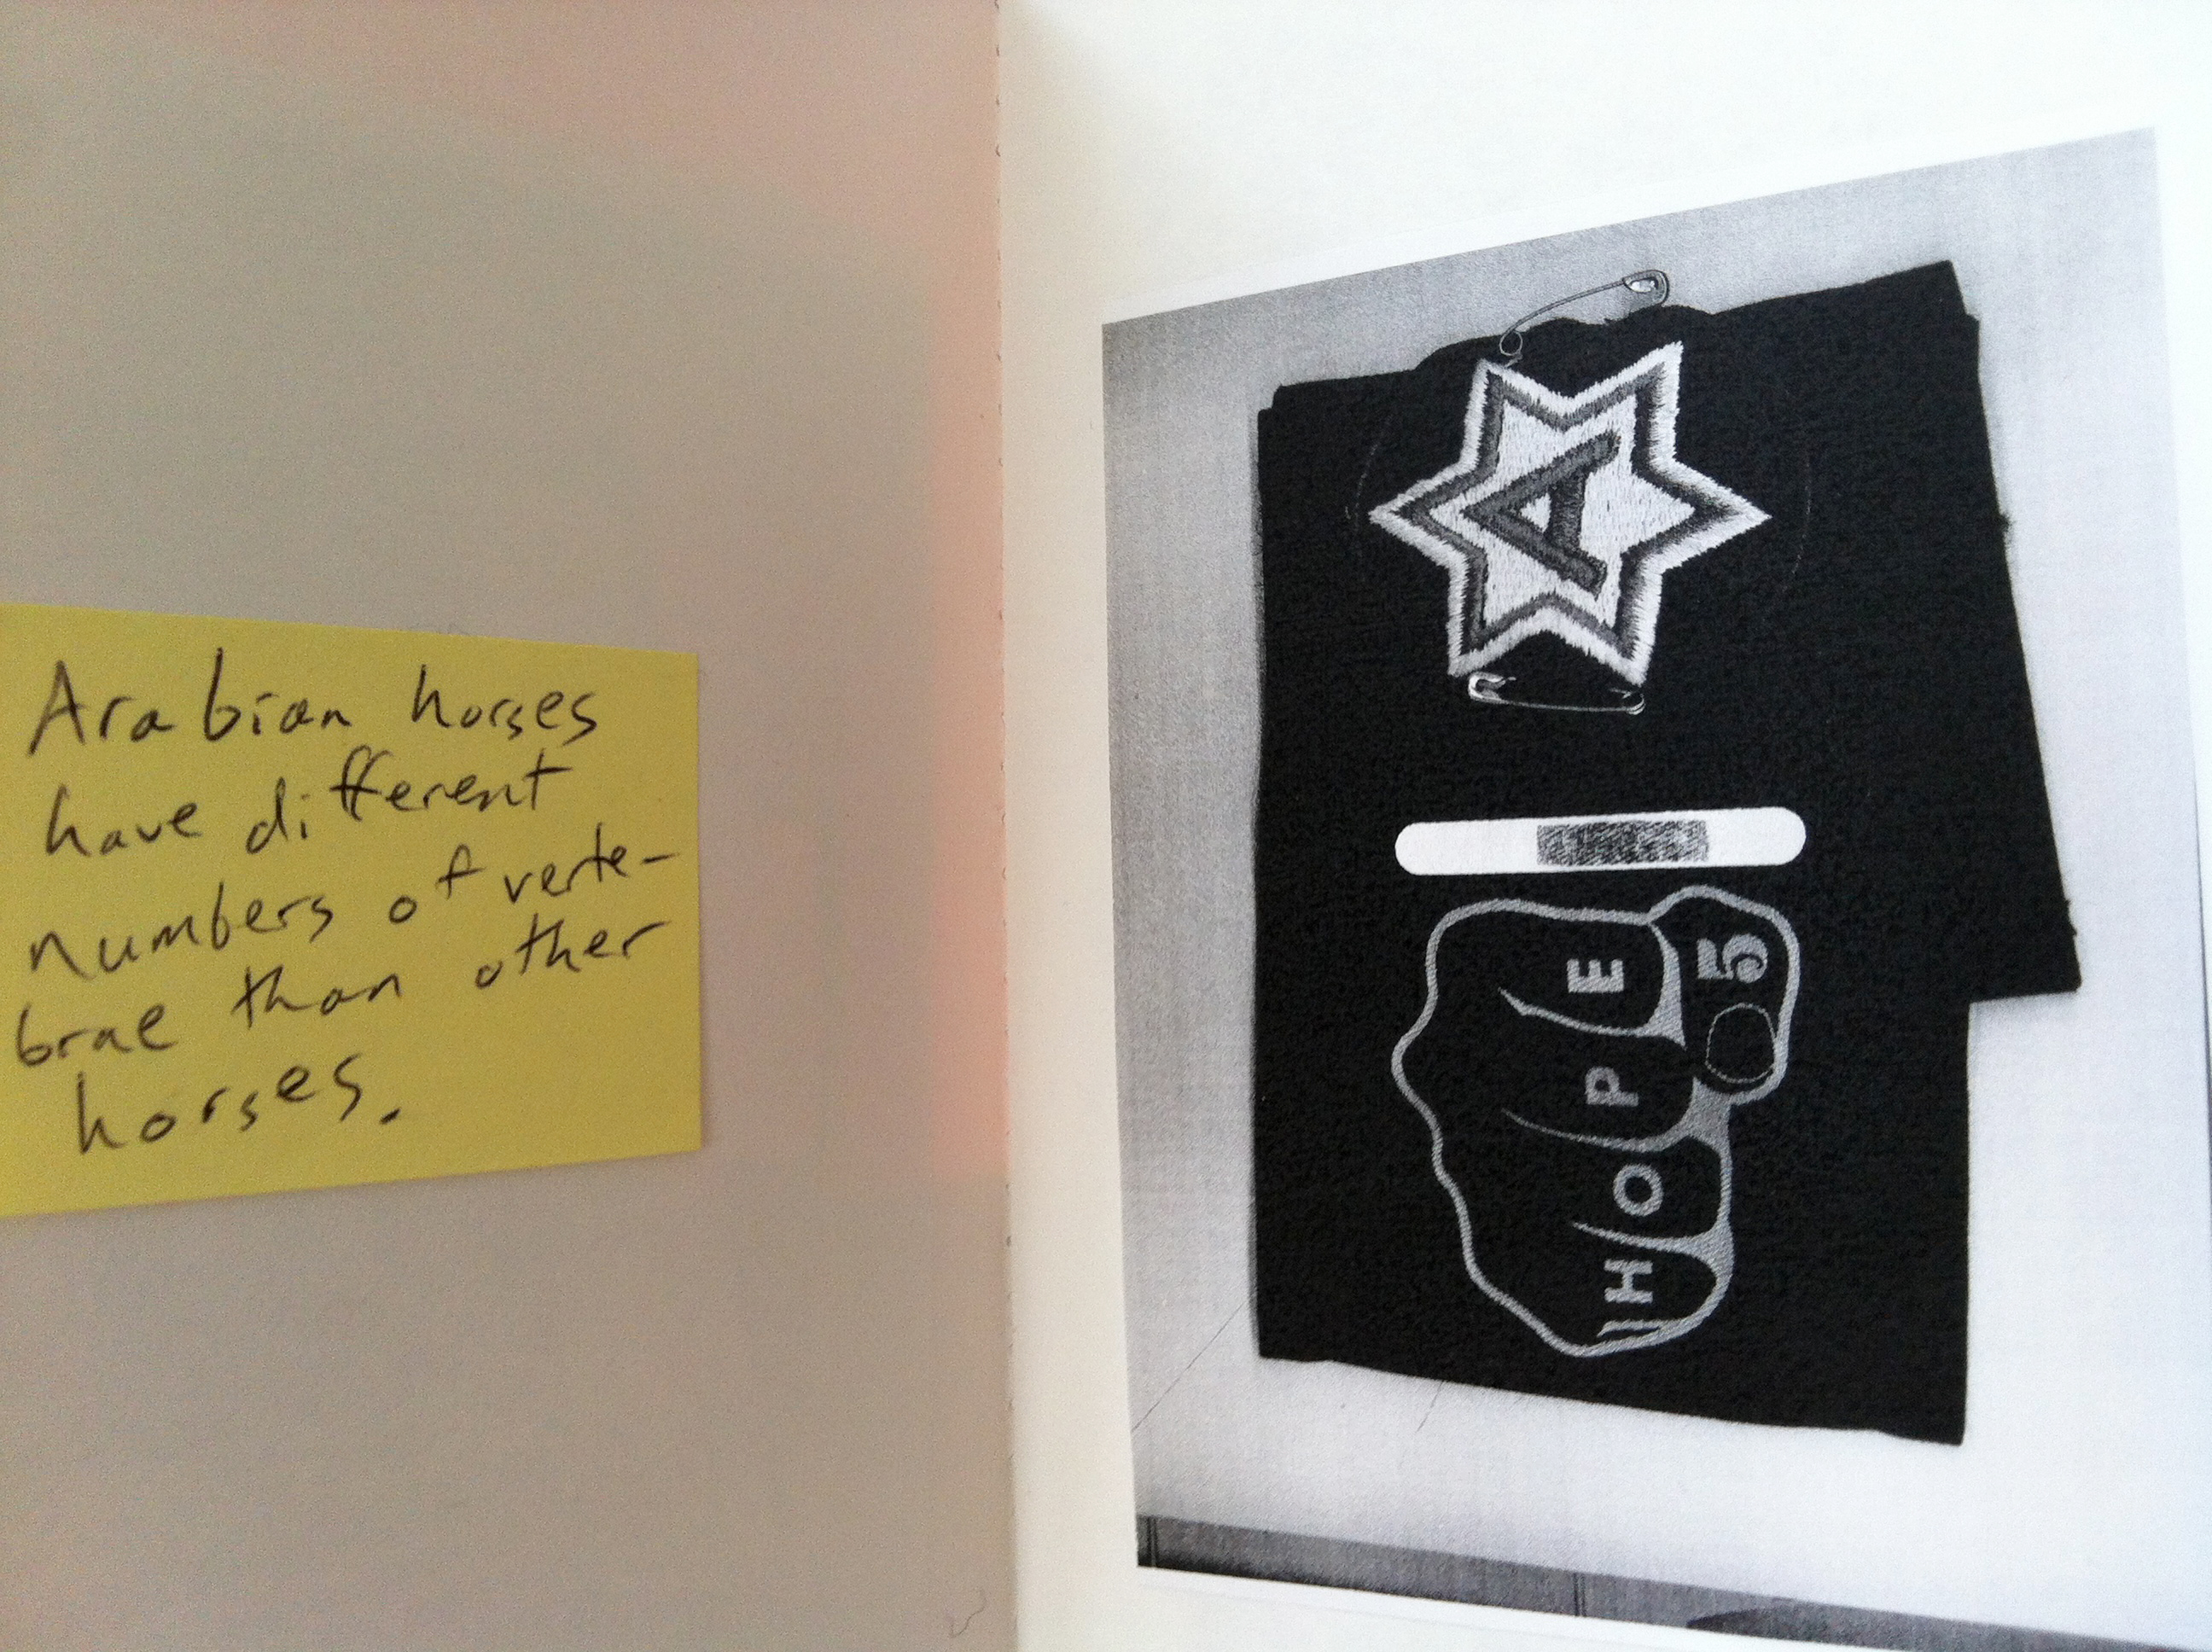 Arabian horses
have different
numbers of verte-
brae than other
horses.
A
HOPE
5